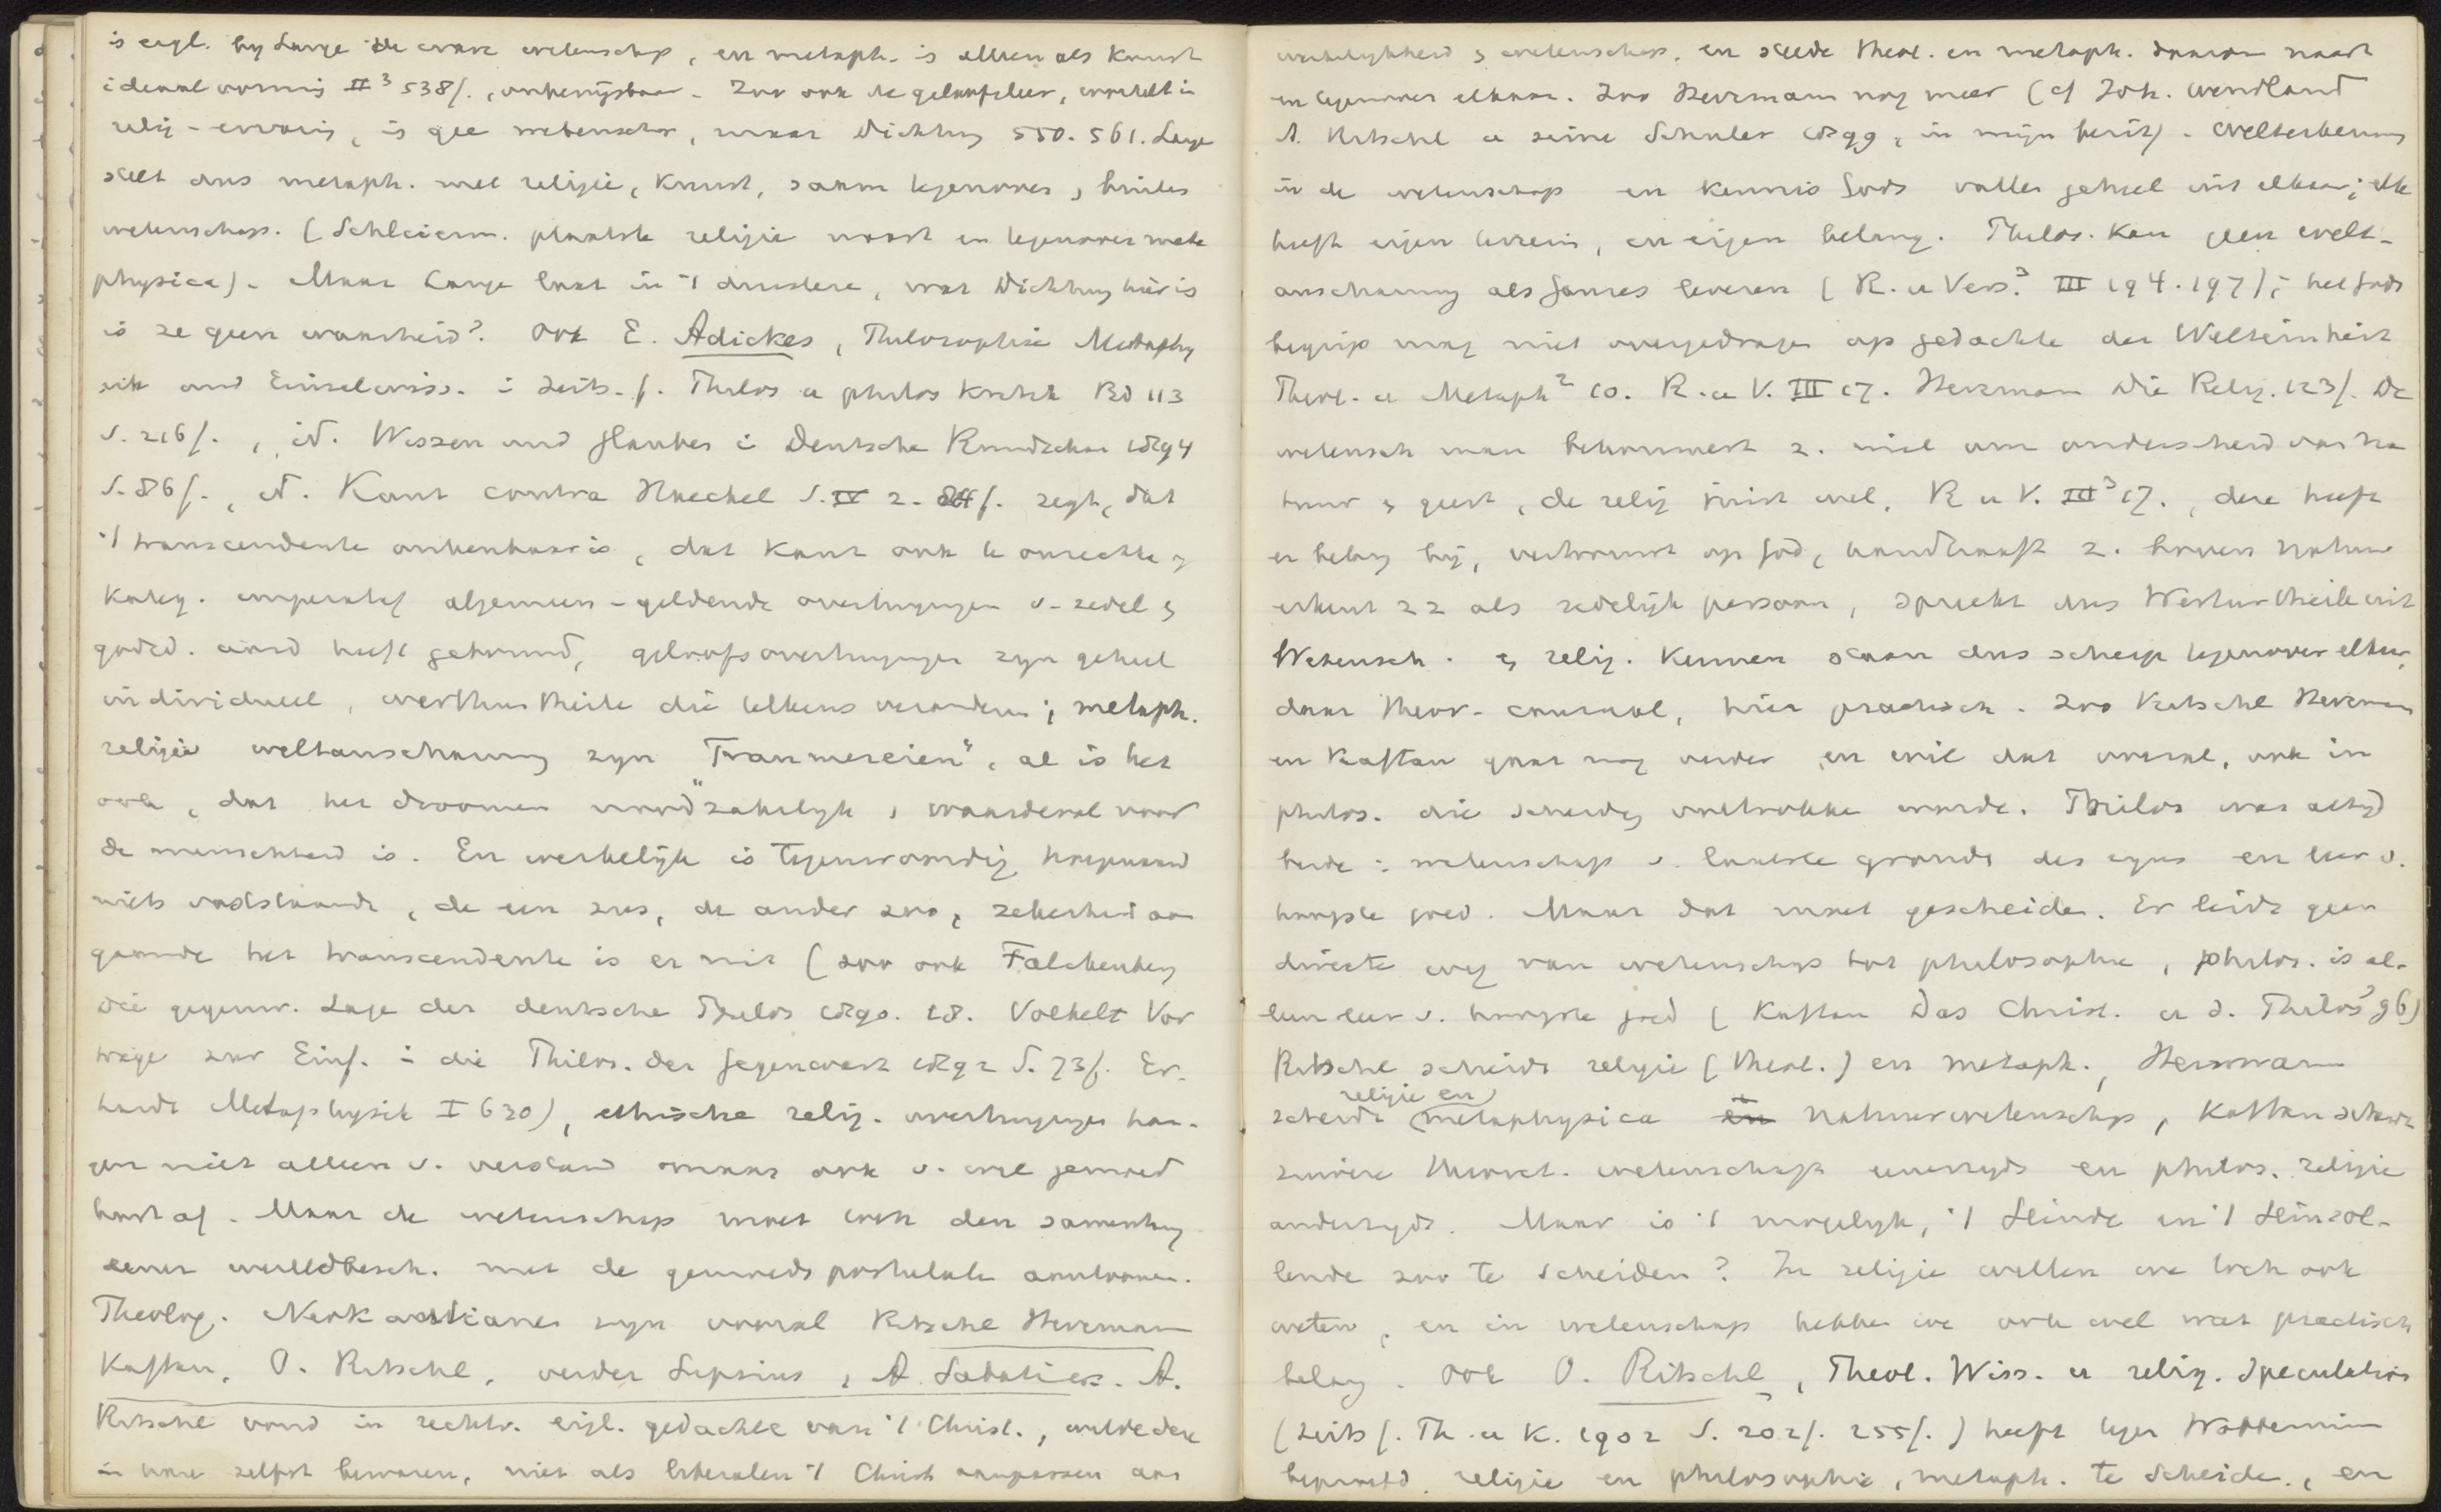 is eigl. by Lange de ware wetenschap, en metaph. is alleen als Kunst
ideaal vormig II³ 538f., onbewysbaar. Zoo ook de geloofsleer, wortelt in
relig-ervaring, is gee wetenschap, maar Dichtung 550. 561. Lange
stelt dus metaph. met religie, Kunst, saam tegenover, buiten
wetenschap. (Schleierm. plaatste religie naast en tegenover meta
physica). Maar Lange laat in 't duistere, wat Dichtung hier is
is ze geen waarheid? Ook E. Adickes, Philosophie Metaphy
sik und Einzelwiss. i Zeits. f. Philos u philos Kritik Bd 113
S. 216f., id. Wissen und Glauben i Deutsche Rundschau 1894
S. 86f., id. Kant contra Haeckel S. IV 2. f. zegt, dat
't transcendente onkenbaar is, dat Kant ook te onrechte
Kateg. imperatief algemeen-geldende overtuigingen v. zedel &
godsd. aard heeft gebouwd, geloofsovertuigingen zyn geheel
individueel, werthurtheile die telkens veranderen; metaph.
religie weltanschauung zyn "Träumereien", al is het
ook, dat het droomen noodzakelyk, waardevol voor
de menschheid is. En werkelijk is tegenwoordig hoegenaamd
niets vaststaande, de een zus, de ander zoo, zekerheid aan
gaande het transcendente is er niet (zoo ook Falckenberg
Die gegenw. Lage der deutsche Philos 1890. 18. Volkelt Vor
träge zur Einf. i die Philos. der Gegenwart 1892 S. 73f. Er-
hardt Metaphysik I 630), ethische relig. overtuigingen han-
gen niet alleen v. verstand maar ook v. wil gemoed
hart af. Maar de wetenschap moet toch den samenhang
eener wereldbesch. met de gemoeds postulate aantoonen.
Theolog. Neokantianer zyn vooral Ritschl Herrmann
Kaftan, O. Ritschl, verder Lipsius, A Sabatier. A.
Ritschl vond in rechtv. eigl. gedachte van 't Christ., wilde deze
in hare zelfst bewaren, niet als liberalen 't Christ aanpassen aan
werkelykheid & wetenschap, en stelde theol. en metaph. daarom naast
en tegenover elkaar. Zoo Herrmann nog meer (cf Joh. Wendland
A. Ritschl u seine Schüler 1899, in mijn bezit). Welterkennen
in de wetenschap en kennis Gods vallen geheel uit elkaar; elk
heeft eigen terrein, en eigen belang. Philos. kan geen welt-
anschauung als Ganzes leveren (R. u Vers.³ III 194. 197); het Gods
begrip mag niet overgedragen op gedachte der Welteinheit
Theol. u Metaph² 10. R. u V. III 17. Herrmann Die Relig. 123f. De
wetensch man bekommert z. niet om onderscheid van na
tuur & geest, de relig juist wel, R u V. III³ 17., deze heeft
er belang bij, vertrouwt op God, handhaaft z. boven natuur
erkent zz als zedelijk persoon, spreekt dus Werthurtheile uit
Wetensch. & relig. kennen staan dus scherp tegenover elkaar,
daar theor. causaal, hier practisch. Zoo Ritschl Herrmann
en Kaftan gaat nog verder en wil dat overal, ook in
philos. die scheiding voltrokke worde. Philos was altyd
beide: wetenschap v. laatste gronde des zyns en leer v.
hoogste goed. Maar dat moet gescheide. Er leidt geen
directe weg van wetenschap tot philosophie, philos. is al-
leen leer v. hoogste goed (Kaftan Das Christ. u d. Philos³ 96)
Ritschl scheidt religie (theol.) en metaph., Herrmann
scheidt religie en metaphysica en natuurwetenschap, Kaftan scheidt
zuivere theoret. wetenschap eenerzyds en philos. religie
anderzyds. Maar is 't mogelyk, 't Seinde en 't Seinsol-
lende zoo te scheiden? In religie willen we toch ook
weten, en in wetenschap hebbe we ook wel wat practisch
belang. Ook O. Ritschl, Theol. Wiss. u relig. Speculation
(Zeits f. Th. u K. 1902 S. 202f. 255f.) heeft tegen Wobbermin
beproefd religie en philosophie, metaph. te scheide., en